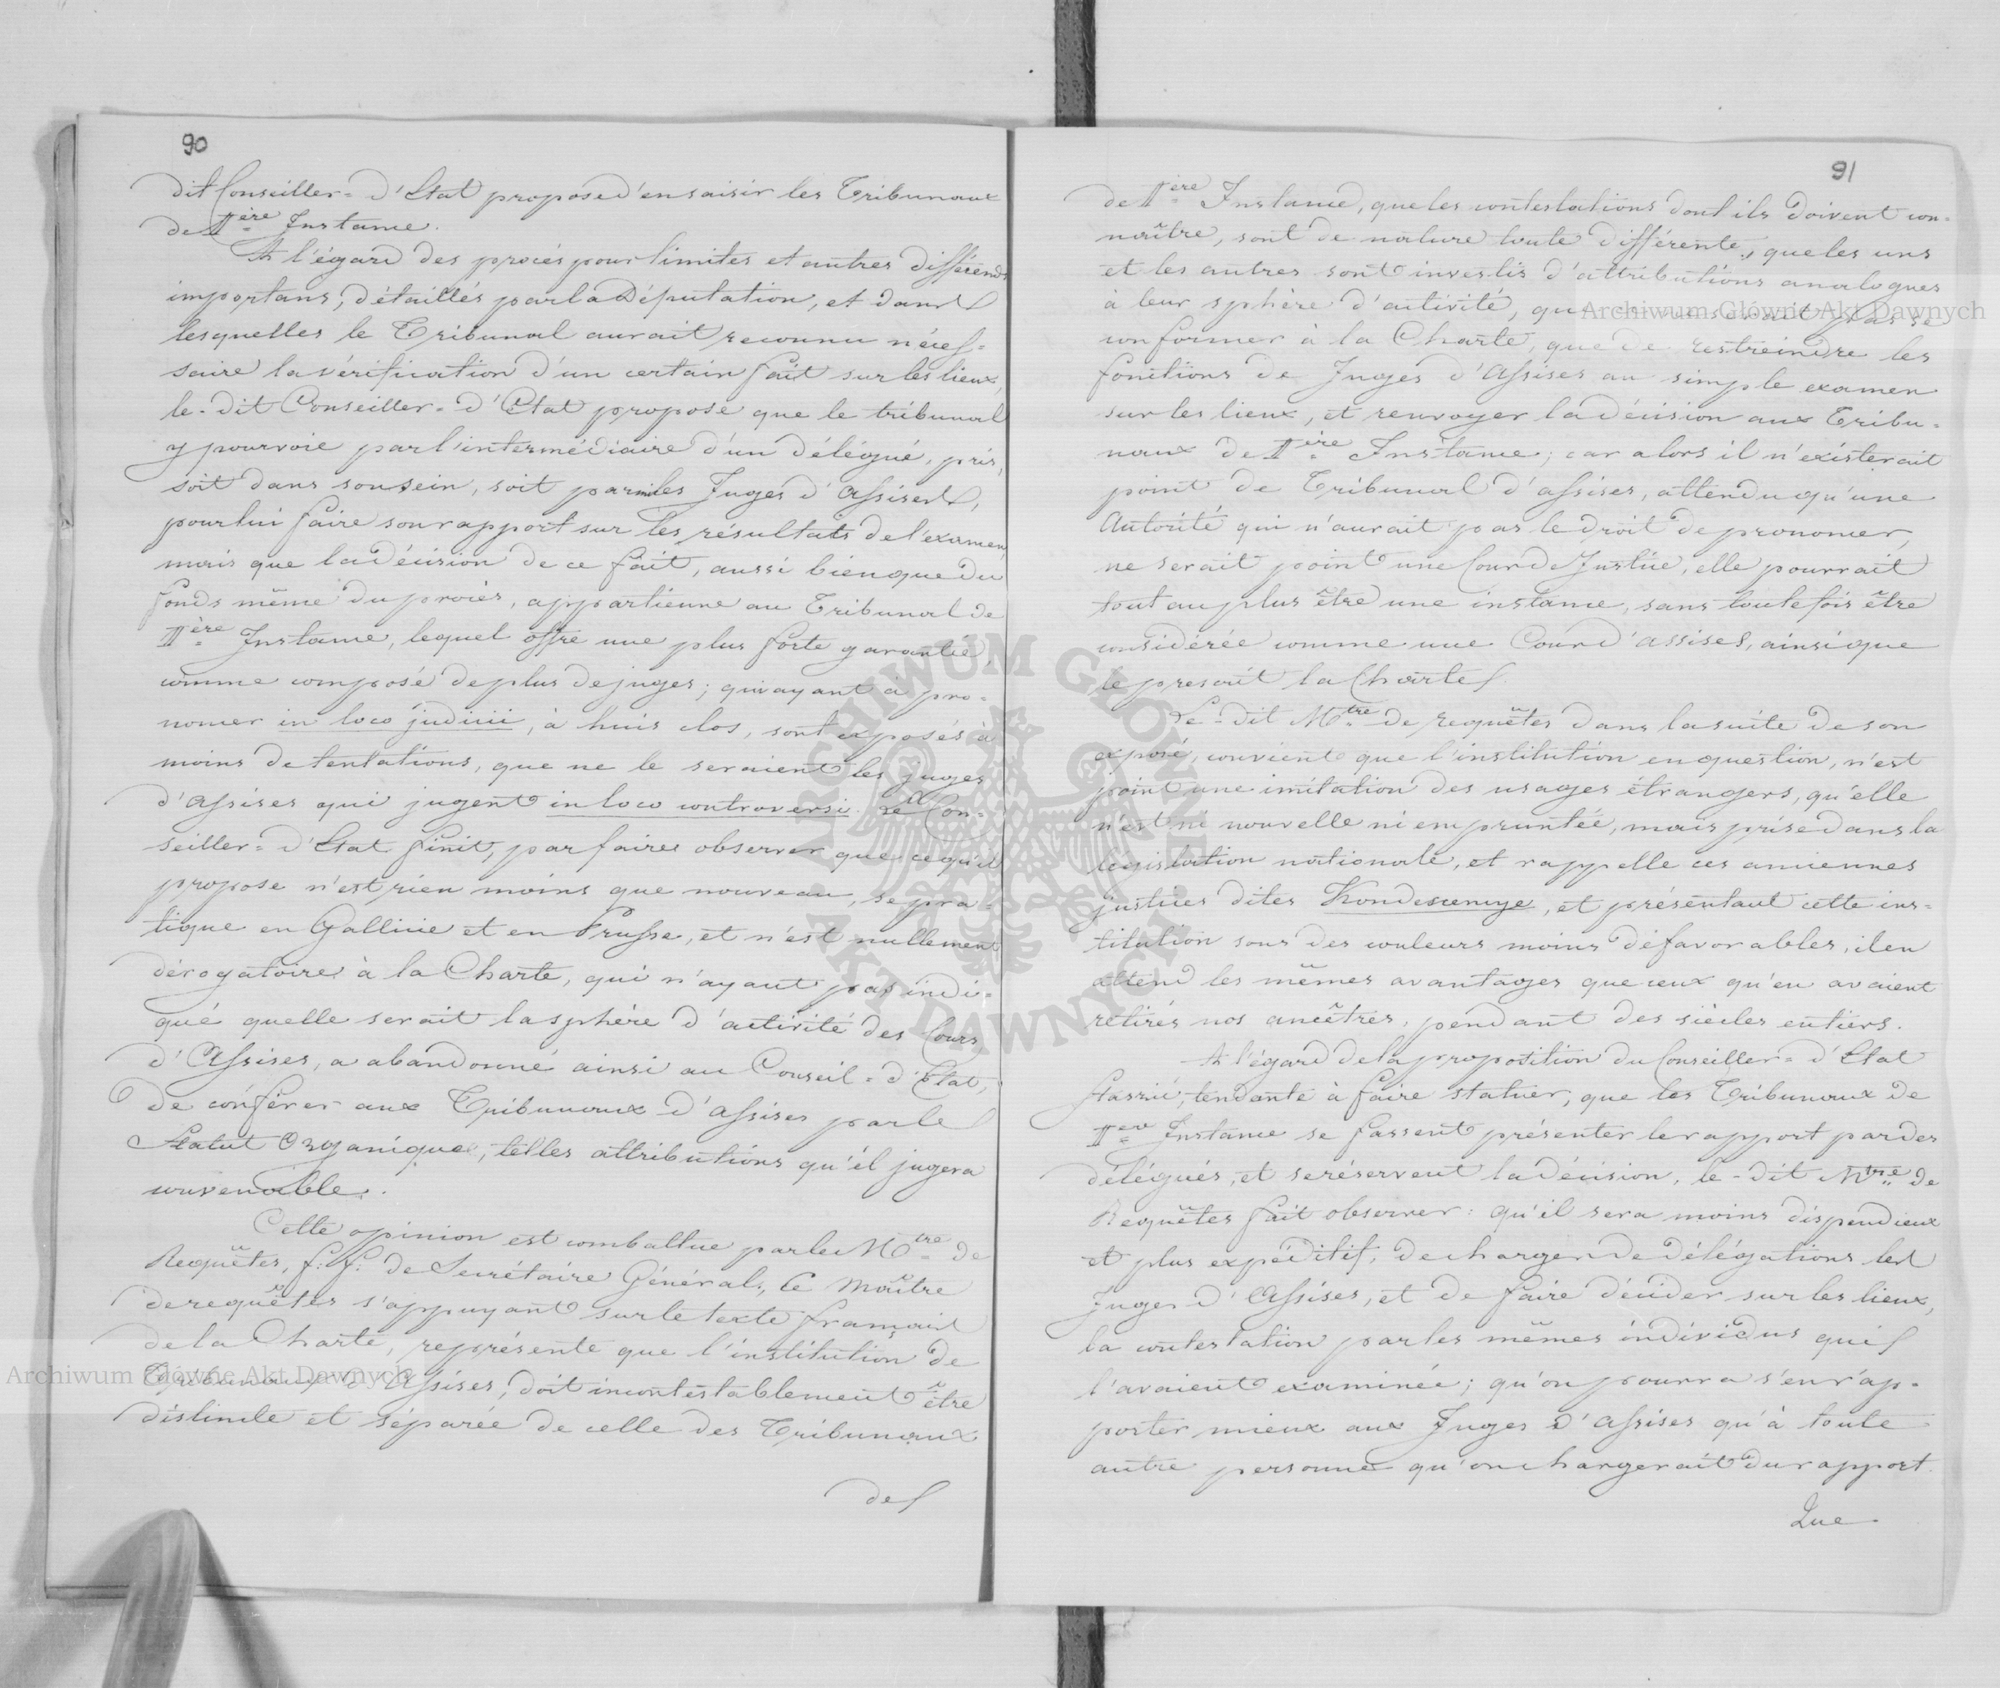 90
dit Conseiller-d'Etat propose d'en saisir les Tribunaux
de Ière Instance.
A l'égard des procès pour limites et autres différends
importans, détaillés par la Députation, et dans
lesquelles le Tribunal aurait reconnu néces-
saire la vérification d'un certain fait sur les lieux,
le-dit Conseiller-d'Etat propose que le tribunal
y pourvoie par l'intermédiaire d'un délégué, pris,
soit dans son sein, soit parmi les Juges d'Assises,
pour lui faire son rapport sur les résultats de l'examen,
mais que la décision de ce fait, aussi bien que du
fonds même du procès, appartienne au Tribunal de
Ière Instance, lequel offre une plus forte garantie,
comme composé de plus de juges; qui ayant à pro-
noncer in loco judicii, à huis clos, sont exposés à
moins de tentations, que ne le seraient les juges
d'Assises qui jugent in loco controversi. Le Con-
seiller-d'Etat finit, par faire observer que ce qu'il
propose n'est rien moins que nouveau, se pra-
tique en Gallicie et en Prusse, et n'est nullement
dérogatoire à la Charte, qui n'ayant pas indi-
qué quelle serait la sphère d'activité des Cours
d'Assises, a abandonné ainsi au Conseil-d'Etat,
de conférer aux Tribunaux d'Assises par le
Statut Organique, telles attributions qu'il jugera
convenable.
Cette opinion est combattue par le Mtre de
Requêtes, f: f: de Secrétaire Général; le Maître
de requêtes s'appuyant sur le texte français
de la Charte, représente que l'institution de
Tribunaux d'Assises, doit incontestablement être
distincte et séparée de celle des Tribunaux
de
91
de Ière Instance, que les contestations dont ils doivent con-
naître, sont de nature toute différente, que les uns
et les autres sont investis d'attributions analogues
à leur sphère d'activité, que ce ne serait pas se
conformer à la Charte, que de restreindre les
fonctions de Juges d'Assises au simple examen
sur les lieux, et renvoyer la décision aux Tribu-
naux de Ière Instance; car alors il n'existerait
point de Tribunal d'assises, attendu qu'une
Autorité qui n'aurait pas le droit de prononcer,
ne serait point une Cour de Justice, elle pourrait
tout au plus être une instance, sans toutefois être
considérée comme une Cour d'assises, ainsi que
le prescrit la Charte.
Le-dit Mtre de requêtes dans la suite de son
exposé, convient que l'institution en question, n'est
point une imitation des usages étrangers, qu'elle
n'est ni nouvelle ni empruntée, mais prise dans la
législation nationale, et rappelle ces anciennes
justices dites Kondescencye, et présentant cette ins-
titution sous des couleurs moins défavorables, il en
attend les mêmes avantages que ceux qu'en avaient
retirés nos ancêtres, pendant des siècles entiers.
A l'égard de la proposition du Conseiller-d'Etat
tendante à faire statuer, que les Tribunaux de
Iere Instance se fassent présenter le rapport par des
délégués, et se réservent la décision, le-dit Mtre de
Requêtes fait observer: qu'il sera moins dispendieux
et plus expéditif, de charger de délégations les
Juges d'Assises, et de faire décider sur les lieux,
la contestation par les mêmes individus qui
l'avaient examinée; qu'on pourra s'en rap-
porter mieux aux Juges d'Assises qu'à toute
autre personne qu'on chargerait du rapport.
Que
Archiwum Główne Akt Dawnych
Archiwum Główne Akt Dawnych
ARCHIWUM GŁÓWNE AKT DAWNYCH